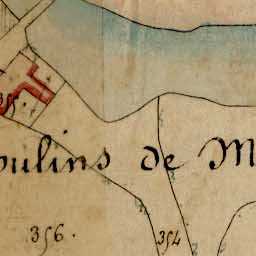 351.
oulins de M
356.
354